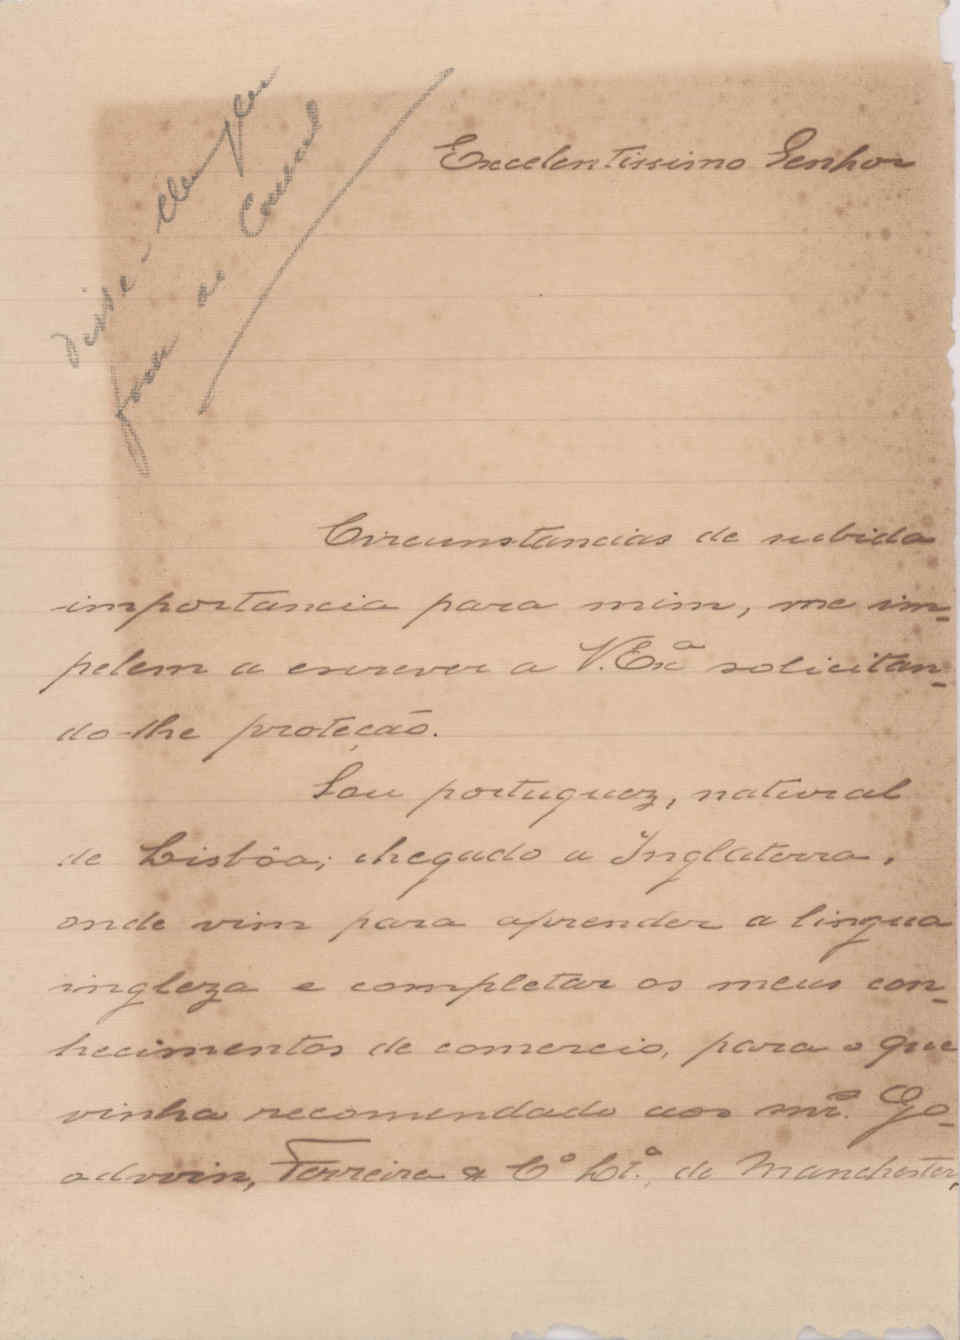 Disse-lhe que
fosse ao Consul
Excelentissimo Senhor
Circunstancias de subida
importancia para mim, me im-
pelem a escrever a V. Exª solicitan-
do-lhe proteção.
Sou portuguez, natural
de Lisbôa; chegado a Inglaterra,
onde vim para aprender a lingua
ingleza e completar os meus con-
hecimentos de comercio, para o que
vinha recomendado aos mrs. Go-
odwin, Ferreira & Cº Ltº, de Manchester,